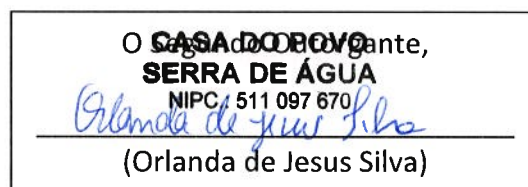 O Segundo Outorgante,
CASA DO POVO
SERRA DE ÁGUA
NIPC. 511 097 670
Orlanda de Jesus Silva
(Orlanda de Jesus Silva)